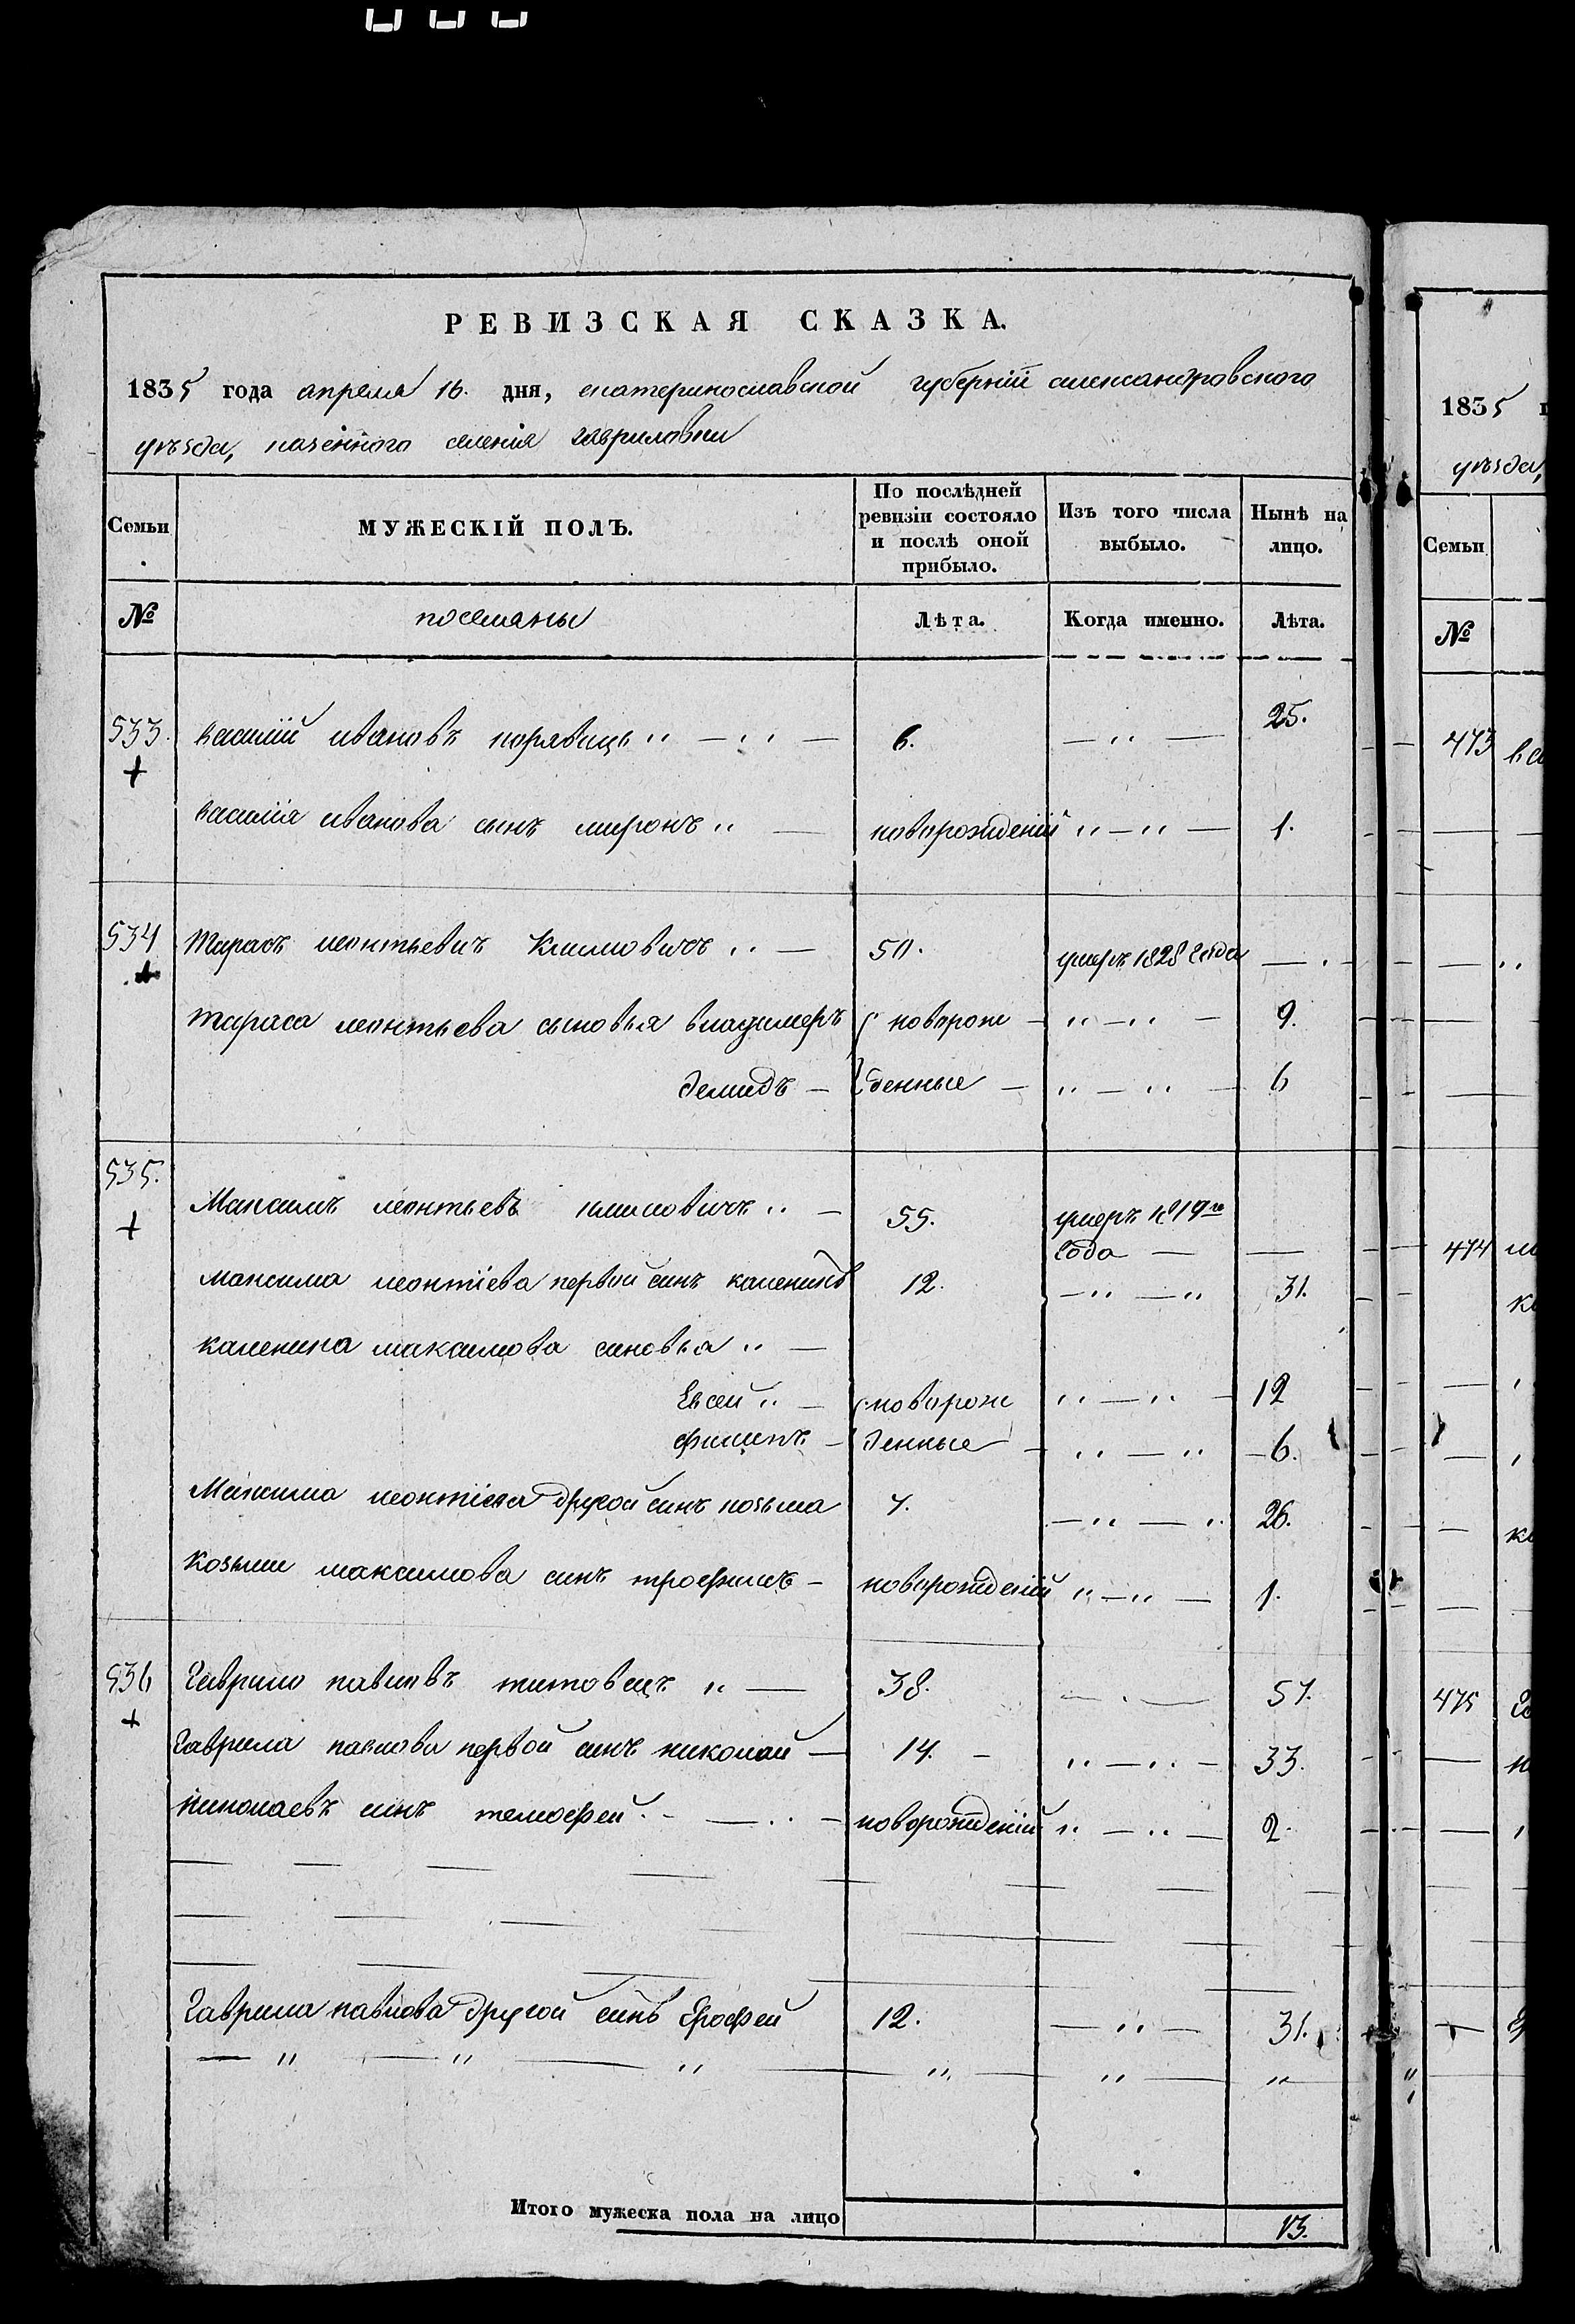 РЕВИЗСКАЯ СКАЗКА.
1835 года апреля 16. дня, екатеринославской губерніи александровского
уѣзда, казенного селенія гавриловки
Семьи
МУЖЕСКІЙ ПОЛЪ.
По послѣдней ревизіи состояло и послѣ оной прибыло.
Изъ того числа выбыло.
Нынѣ на лицо.
№ поселяны Лѣта. Когда именно. Лѣта.
533. василій ивановъ 6. 25.
василія иванова сынъ миронъ новорожденій 1.
534 Тарасъ леонтьевич Климовичъ 50. умеръ 1828 года
тараса леонтьева сыновья владимеръ новорож 9.
демидъ денные 6
535. Максимъ леонтьевъ климовичъ 55. умеръ 1819го
года
максима леонтіева первой синъ каленикъ 12. 31.
каленика максимова синовья
Евсей новорож 12
филипъ денные 6.
Максима леонтіева другой синъ козьма 7. 26.
Козьми максимова синъ трофимъ новорожденій 1.
536 Гаврило павловъ титовецъ 38. 57.
Гаврила павлова первой синъ николай 14. 33.
николаевъ синъ темофей новорожденій 2.
Гаврила павлова другой синъ Ерофей 12. 31.
Итого мужеска пола на лицо 13.
1835
уѣзда,
Семьи
№
473
474
475